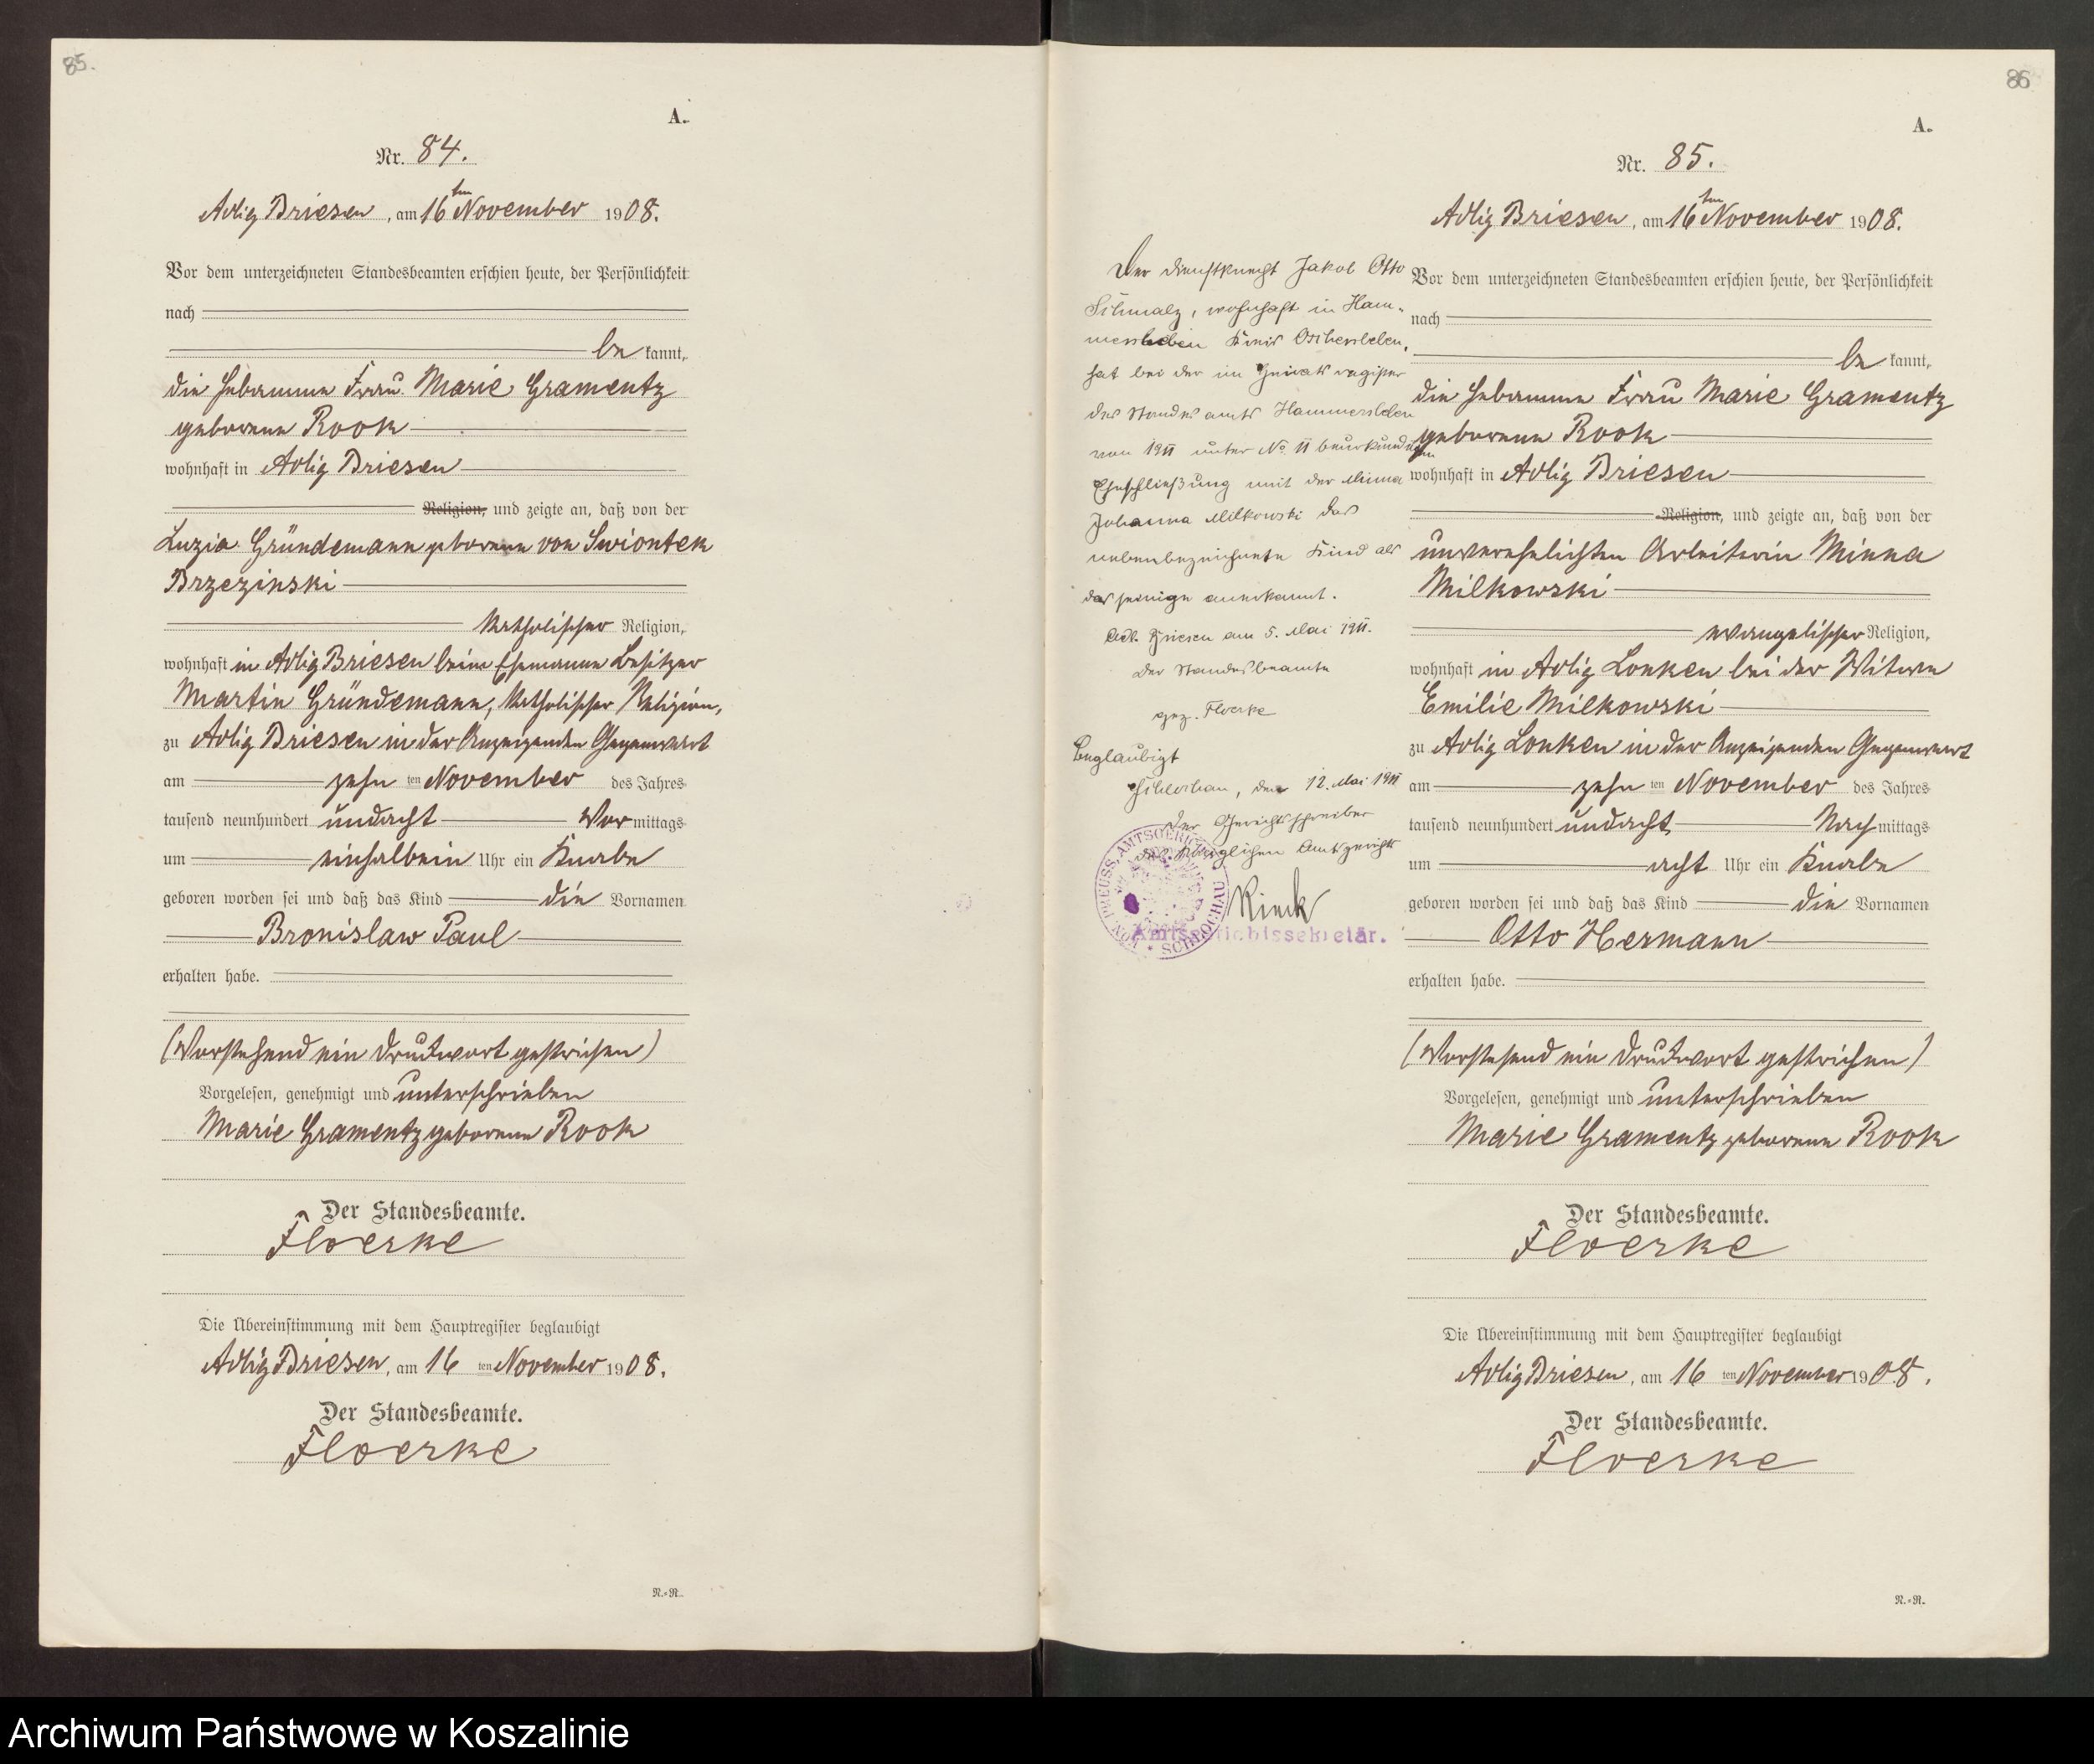 85.
A.
Nr. 84.
Adlig Briesen, am 16ten November 1908.
Vor dem unterzeichneten Standesbeamten erschien heute, der Persönlichkeit
nach
be kannt,
die Hebamme Frau Marie Gramentz
geborene Rook
wohnhaft in Adlig Briesen
Religion, und zeigte an, daß von der
Luzia Gründemann geborene von Swiontek
Brzezinski
katholischer Religion,
wohnhaft in Adlig Briesen beim Ehemanne Besitzer
Martin Gründemann, katholischer Religion,
zu Adlig Briesen in der Anzeigenden Gegenwart
am zehn ten November des Jahres
tausend neunhundert undacht Vor mittags
um einhalbein Uhr ein Knabe
geboren worden sei und daß das Kind die Vornamen
Bronislaw Paul
erhalten habe.
(Vorstehend ein Druckwort gestrichen)
Vorgelesen, genehmigt und unterschrieben
Marie Gramentz geborene Rook
Der Standesbeamte.
Floerke
Die Übereinstimmung mit dem Hauptregister beglaubigt
Adlig Briesen, am 16 ten November 1908.
Der Standesbeamte.
Floerke
N.=R.
86
A.
Nr. 85.
Adlig Briesen, am 16ten November 1908.
Der Dienstknecht Jakob Otto
Schmalz, wohnhaft in Ham-
mersleben Kreis Oschersleben,
hat bei der im Heiratsregister
des Standesamts Hammersleben
von 1911 unter No 11 beurkundeten
Eheschließung mit der Minna
Johanna Milkowski das
nebenbezeichnete Kind als
das seinige anerkannt.
Adl. Briesen am 5. Mai 1911.
Der Standesbeamte
gez. Floerke
Beglaubigt
Schlochau, den 12. Mai 1911
Der Gerichtsschreiber
des Königlichen Amtsgerichts
Rieck
Amtsgerichtssekretär.
Vor dem unterzeichneten Standesbeamten erschien heute, der Persönlichkeit
nach
be kannt,
die Hebamme Frau Marie Gramentz
geborene Rook
wohnhaft in Adlig Briesen
Religion, und zeigte an, daß von der
unverehelichten Arbeiterin Minna
Milkowski
evangelischer Religion,
wohnhaft in Adlig Lonken bei der Witwe
Emilie Milkowski
zu Adlig Lonken in der Anzeigenden Gegenwart
am zehn ten November des Jahres
tausend neunhundert undacht Nach mittags
um acht Uhr ein Knabe
geboren worden sei und daß das Kind die Vornamen
Otto Hermann
erhalten habe.
(Vorstehend ein Druckwort gestrichen)
Vorgelesen, genehmigt und unterschrieben
Marie Gramentz geborene Rook
Der Standesbeamte.
Floerke
Die Übereinstimmung mit dem Hauptregister beglaubigt
Adlig Briesen, am 16 ten November 1908.
Der Standesbeamte.
Floerke
N.=R.
Archiwum Państwowe w Koszalinie